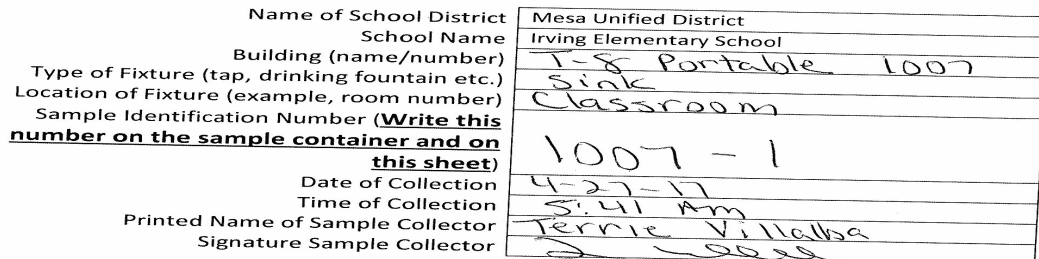 Name of School District Mesa Unified District
School Name Irving Elementary School
Building (name/number) T-8 Portable 1007
Type of Fixture (tap, drinking fountain etc.) Sink
Location of Fixture (example, room number) Classroom
Sample Identification Number (Write this
number on the sample container and on
this sheet) 1007-1
Date of Collection 4-27-17
Time of Collection 5:41 Am
Printed Name of Sample Collector Terrie Villalba
Signature Sample Collector